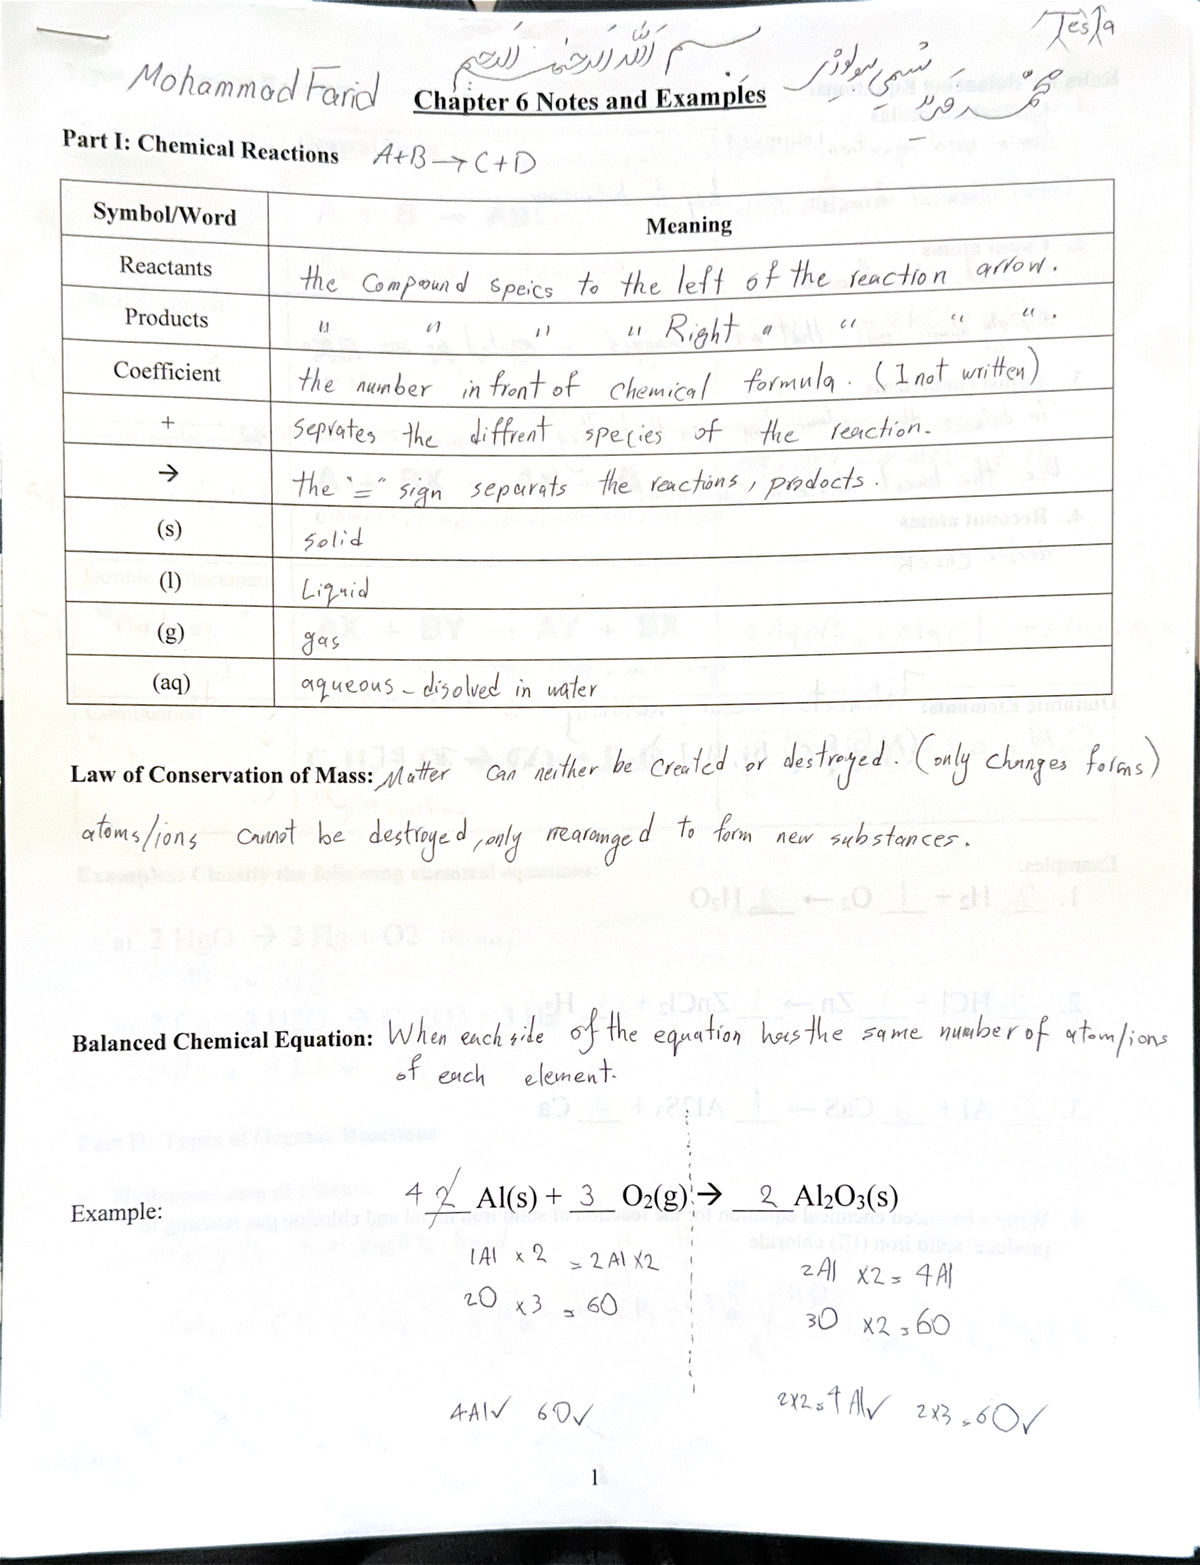 Tesla
بسم الله الرحمن الرحيم
Mohammad Farid
Chapter 6 Notes and Examples
محمد فريد
Part I: Chemical Reactions A+B→C+D
Symbol/Word Meaning
Reactants the Compound speics to the left of the reaction arrow.
Products " " " " Right " " " ".
Coefficient the number in front of chemical formula. (1 not written)
+ seprates the diffrent species of the reaction.
→ the "=" sign separats the reactions, prodocts.
(s) solid
(l) Liquid
(g) gas
(aq) aqueous - disolved in water
Law of Conservation of Mass: Matter can neither be created or destroyed. (only changes forms)
atoms/ions cannot be destroyed, only rearanged to form new substances.
Balanced Chemical Equation: When each side of the equation has the same number of atom/ions
of each element.
Example: 4 2 Al(s) + 3 O2(g) → 2 Al2O3(s)
1Al x 2 = 2Al x2 2Al x2 = 4Al
2O x3 = 6O 3O x2 = 6O
4Al✓ 6O✓ 2x2=4 Al✓ 2x3=6O✓
1